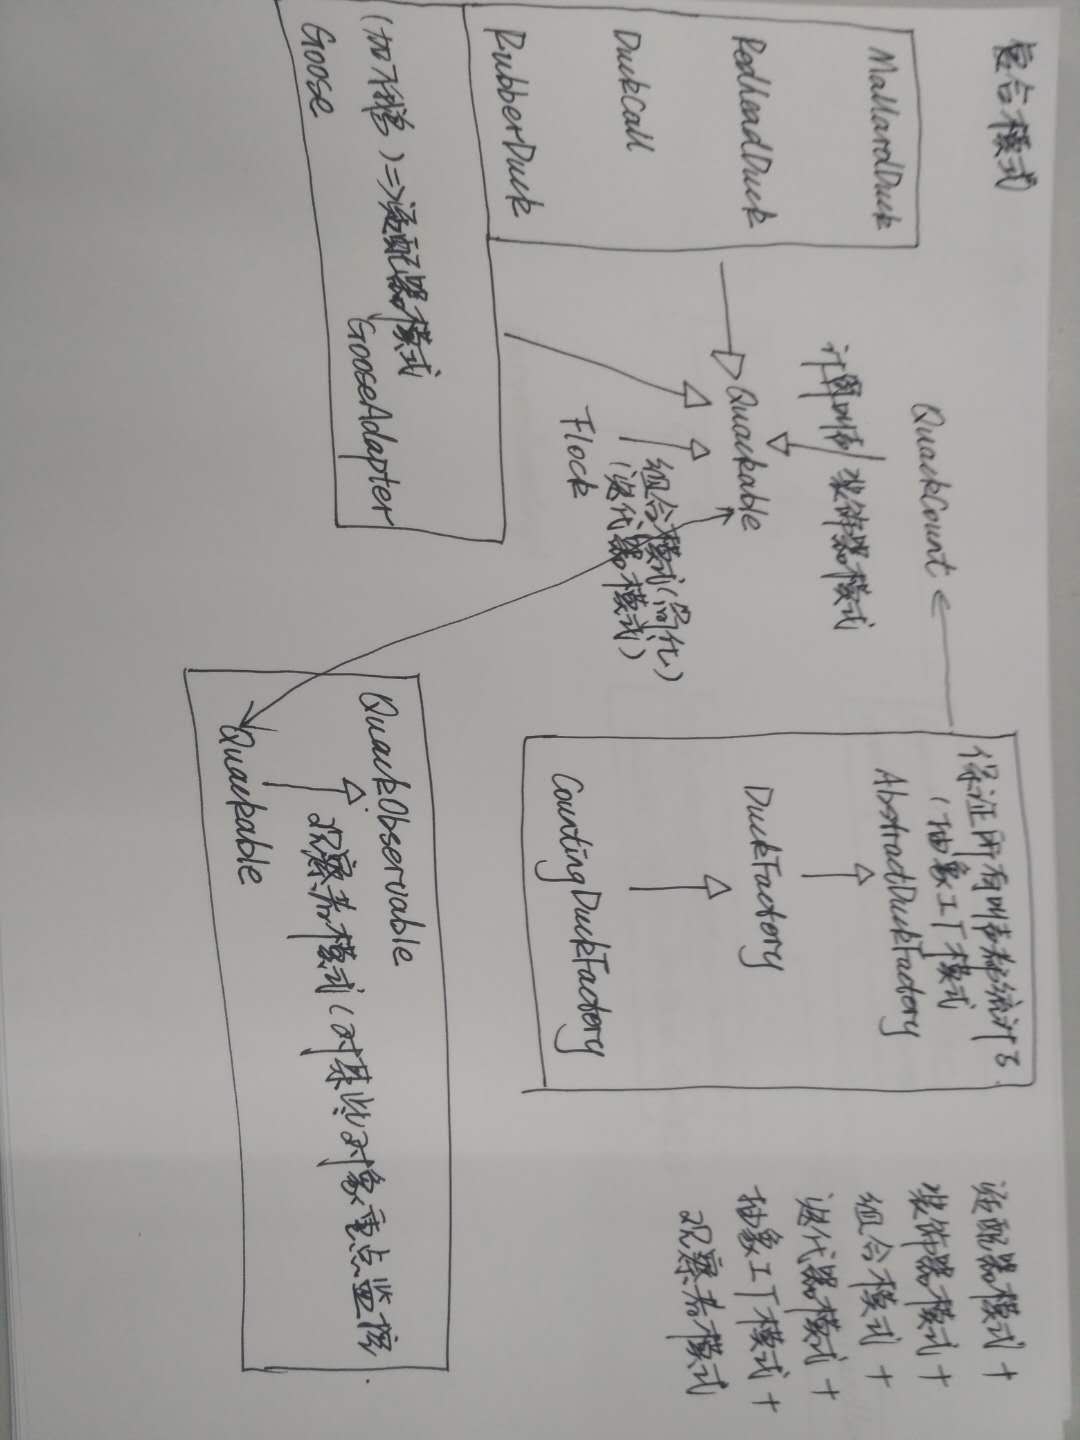 复合模式
MallardDuck
RedheadDuck
DuckCall
RubberDuck
(加 鹅)=>适配器模式
Goose
GooseAdapter
QuackCount
叫声 装饰器模式
Quackable
组合模式(简化)
(迭代器模式)
Flock
保证所有叫声都统计了
(抽象工厂模式
AbstractDuckFactory
DuckFactory
CountingDuckFactory
QuackObservable
观察者模式(对某些对象重点监控
Quackable
适配器模式+
装饰器模式+
组合模式+
迭代器模式+
抽象工厂模式+
观察者模式